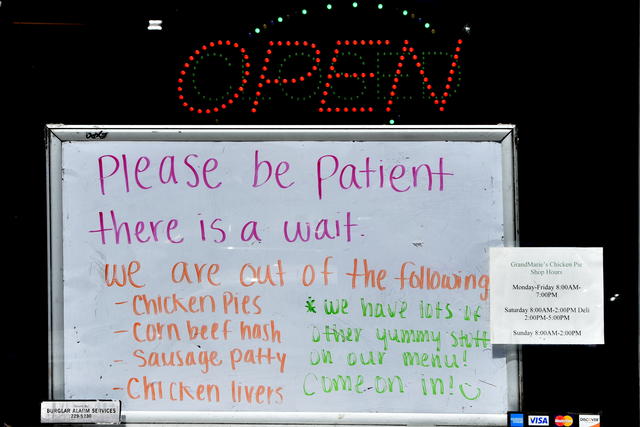 OPEN
Please be Patient
there is a wait.
we are out of the following
- Chicken Pies
- Corn beef hash
- Sausage Patty
- Chicken livers
* we have lots of
other yummy stuff
on our menu!
Come on in!
GrandMarie's Chicken Pie
Shop Hours
Monday-Friday 8:00AM-
7:00PM
Saturday 8:00AM-2:00PM Deli
2:00PM-5:00PM
Sunday 8:00AM-2:00PM
BURGLAR ALARM SERVICES
VISA
MasterCard
DISCOVER